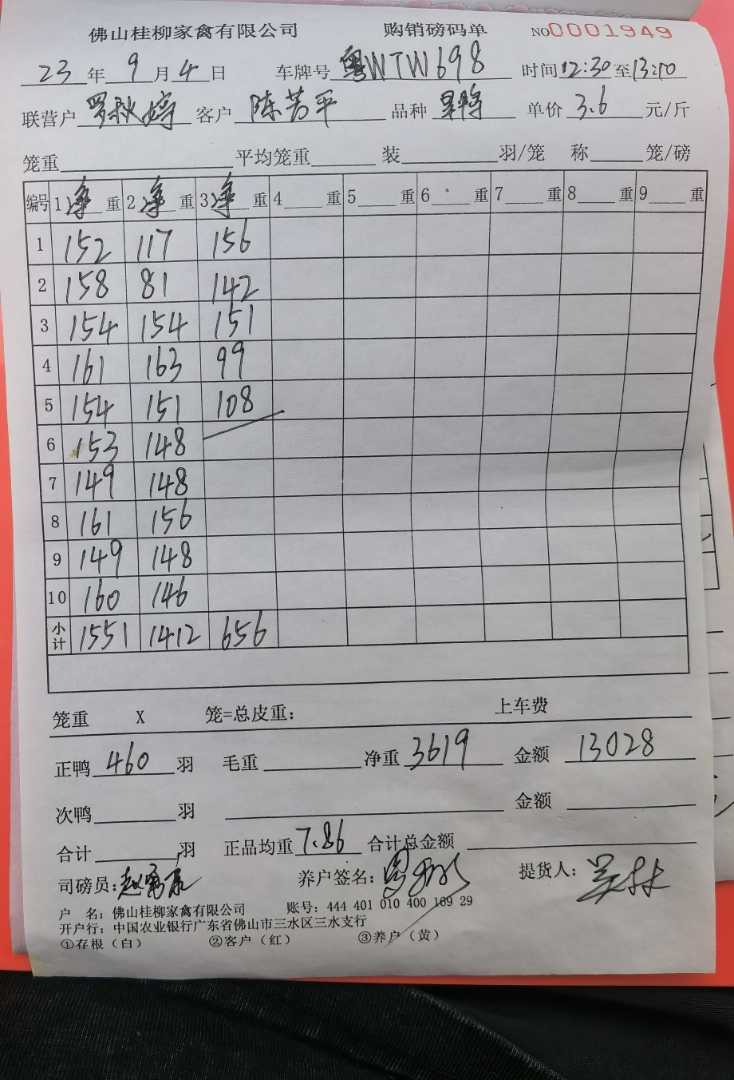 佛山桂柳家禽有限公司 购销磅码单 NO0001949
23年9月4日 车牌号 粤WTW698 时间12:30至13:10
联营户 罗秋婷 客户 陈芳平 品种 单价 3.6 元/斤
笼重 平均笼重 装 羽/笼 称 笼/磅
编号 1净重 2净重 3净重 4 重 5 重 6 重 7 重 8 重 9 重
1 152 117 156
2 158 81 142
3 154 154 151
4 161 163 99
5 154 151 108
6 153 148
7 149 148
8 161 156
9 149 148
10 160 146
小计 1551 1412 656
笼重 X 笼=总皮重: 上车费
正鸭 460 羽 毛重 净重 3619 金额 13028
次鸭 羽 金额
合计 羽 正品均重 7.86 合计总金额
司磅员: 养户签名: 提货人:
户 名: 佛山桂柳家禽有限公司 账号: 444 401 010 400 169 29
开户行: 中国农业银行广东省佛山市三水区三水支行
①存根(白) ②客户(红) ③养户(黄)